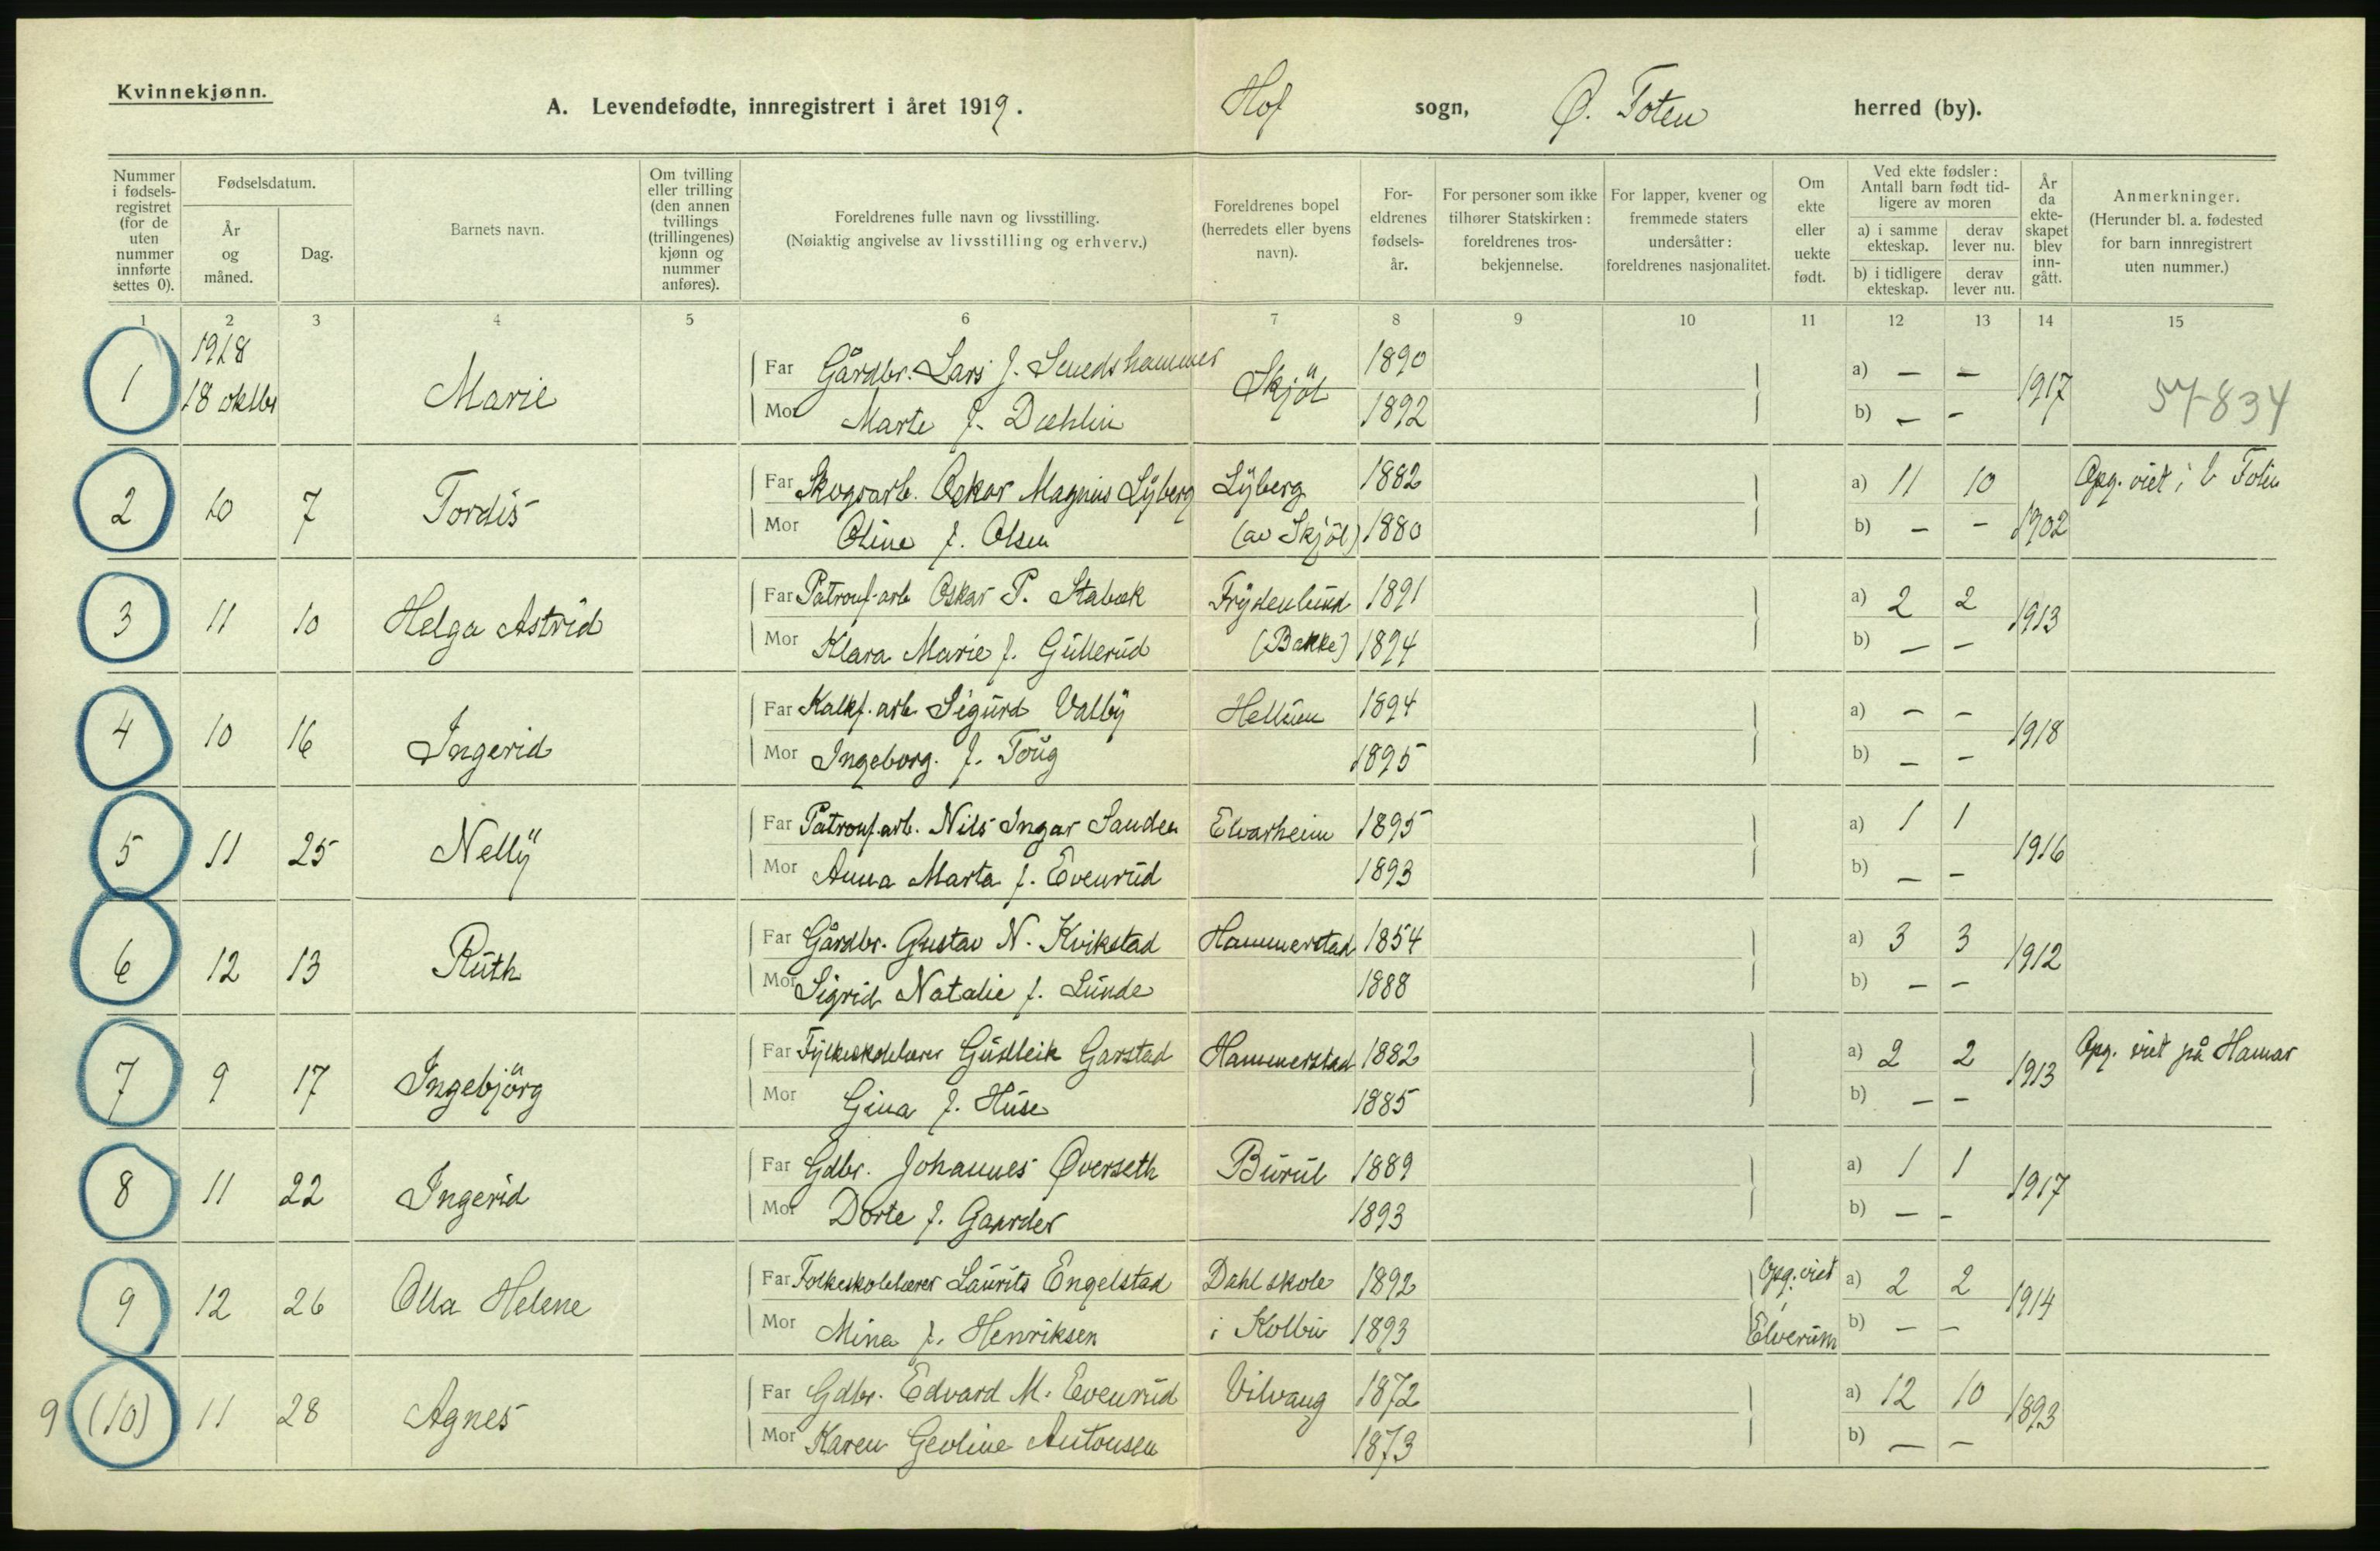 Kvinnekjønn.
A. Levendefødte, innregistrert i året 1919. Hof sogn, Ø. Toten herred (by).
Nummer i fødsels-registret (for de uten nummer innførte settes 0).
Fødselsdatum.
År og måned.
Dag.
Barnets navn.
Om tvilling eller trilling (den annen tvillings (trillingenes) kjønn og nummer anføres).
Foreldrenes fulle navn og livsstilling.
(Nøiaktig angivelse av livsstilling og erhverv.)
Foreldrenes bopel (herredets eller byens navn).
For-eldrenes fødsels-år.
For personer som ikke tilhører Statskirken: foreldrenes tros-bekjennelse.
For lapper, kvener og fremmede staters undersåtter: foreldrenes nasjonalitet.
Om ekte eller uekte født.
Ved ekte fødsler: Antall barn født tid-ligere av moren
a) i samme ekteskap.
derav lever nu.
b) i tidligere ekteskap.
derav lever nu.
År da ekte-skapet blev inn-gått.
Anmerkninger.
(Herunder bl. a. fødested for barn innregistrert uten nummer.)
1 2 3 4 5 6 7 8 9 10 11 12 13 14 15
1918
1 18 oktbr Marie
Far Gårdbr. Lars J. Smedshammer Skjöl 1890 a) – – 1917
Mor Marte f. Dæhlin 1892 b) – –
57-834
2 10 7 Tordis
Far Skogsarb. Oskar Magnus Lyberg Lyberg 1882 a) 11 10 Opg. viet i V Toten
Mor Oline f. Olsen (av Skjöl) 1880 b) – – 1902
3 11 10 Helga Astrid
Far Patronf.arb Oskar P. Stabæk Frydenlund 1891 a) 2 2 1913
Mor Klara Marie f. Gullerud (Bakke) 1894 b) – –
4 10 16 Ingerid
Far Kalkf. arb. Sigurd Valby Hellum 1894 a) – – 1918
Mor Ingeborg f. Toug 1895 b) – –
5 11 25 Nelly
Far Patronf.arb. Nils Ingar Sanden Elvarheim 1895 a) 1 1 1916
Mor Anna Marta f. Evenrud 1893 b) – –
6 12 13 Ruth
Far Gårdbr. Gustav N. Kvikstad Hammerstad 1854 a) 3 3 1912
Mor Sigrid Natalie f. Lunde 1888 b) – –
7 9 17 Ingebjörg
Far Fylkeskolelærer Gudleik Garstad Hammerstad 1882 a) 2 2 1913 Opg. viet på Hamar
Mor Gina f. Huse 1885 b) – –
8 11 22 Ingerid
Far Gdbr. Johannes Øverseth Burul 1889 a) 1 1 1917
Mor Dorte f. Gaarder 1893 b) – –
9 12 26 Olla Helene
Far Folkeskolelærer Laurits Engelstad Dahl skole 1892 Opg. viet i a) 2 2 1914
Mor Mina f. Henriksen i Kolbu 1893 Elverum b) – –
9 (10) 11 28 Agnes
Far Gdbr. Edvard M. Evenrud Vilvang 1872 a) 12 10 1893
Mor Karen Geoline Antonsen 1873 b) – –